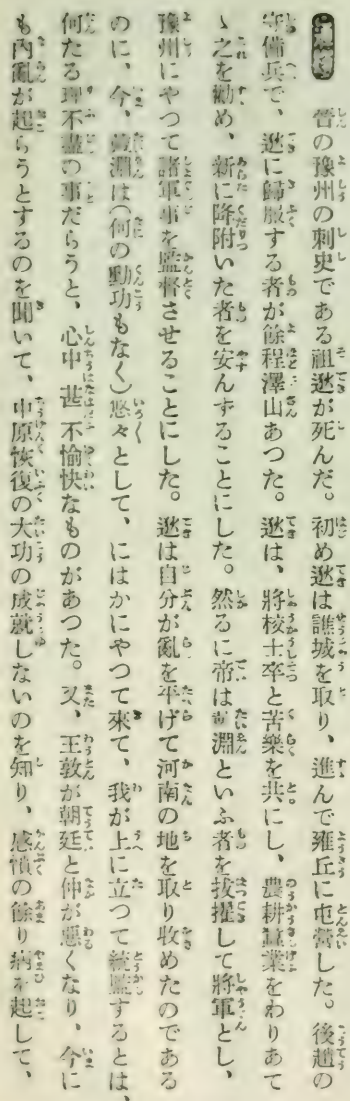 晉の豫州の刺史である祖逖が死んだ。初め逖は譙城を取り、進んで雍丘に屯營した。後趙の
守備兵で、逖に歸服する者が餘程澤山あつた。逖は、將校士卒と苦樂を共にし、農耕蠶業をわりあて
ゝ之を勸め、新に降附いた者を安んずることにした。然るに帝は戴淵といふ者を拔擢して將軍とし、
豫州にやつて諸軍事を監督させることにした。逖は自分が亂を平げて河南の地を取り收めたのである
のに、今、戴淵は(何の勳功もなく)悠々として、にはかにやつて來て、我が上に立つて統監するとは、
何たる理不盡の事だらうと、心中甚不愉快なものがあつた。又、王敦が朝廷と仲が惡くなり、今に
も內亂が起らうとするのを聞いて、中原恢復の大功の成就しないのを知り、感憤の餘り病を起して、